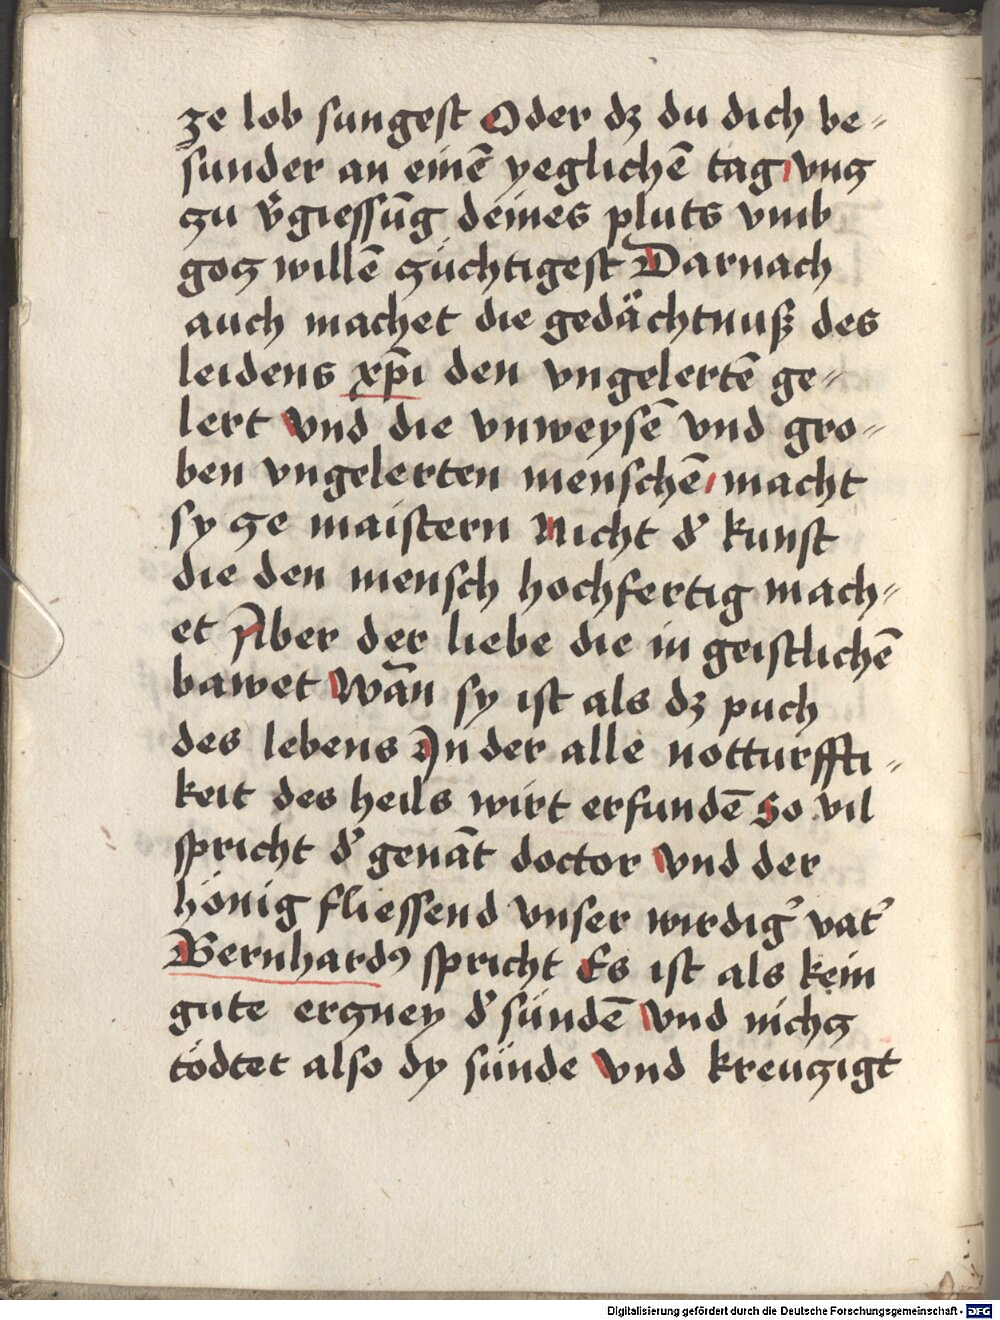 ze lob sungest Oder dz du dich be-
sunder an einē yeglichē tag vnz
zu v̾giessūg deines pluts vmb
goz willē züchtigest Darnach
auch machet die gedächtnuß des
leidens xp̄i den vngelertē ge-
lert Vnd die vnweysē vnd gro-
ben vngelerten menschē macht
sy ze maistern Nicht d̾ kunst
die den mensch hochfertig mach-
et Aber der liebe die in geistlichē
bawet Wān sy ist als dz puch
des lebens In der alle notturffti-
keit des heils wirt erfundē So vil
spricht d̾ genāt doctor Vnd der
hönig fliessend vnser wirdig̾ vat̾
Bernhardꝯ spricht Es ist als kein
gute erzney d̾ sündē Vnd nichz
tödtet also dy sünde Vnd kreuzigt
Digitalisierung gefördert durch die Deutsche Forschungsgemeinschaft - DFG